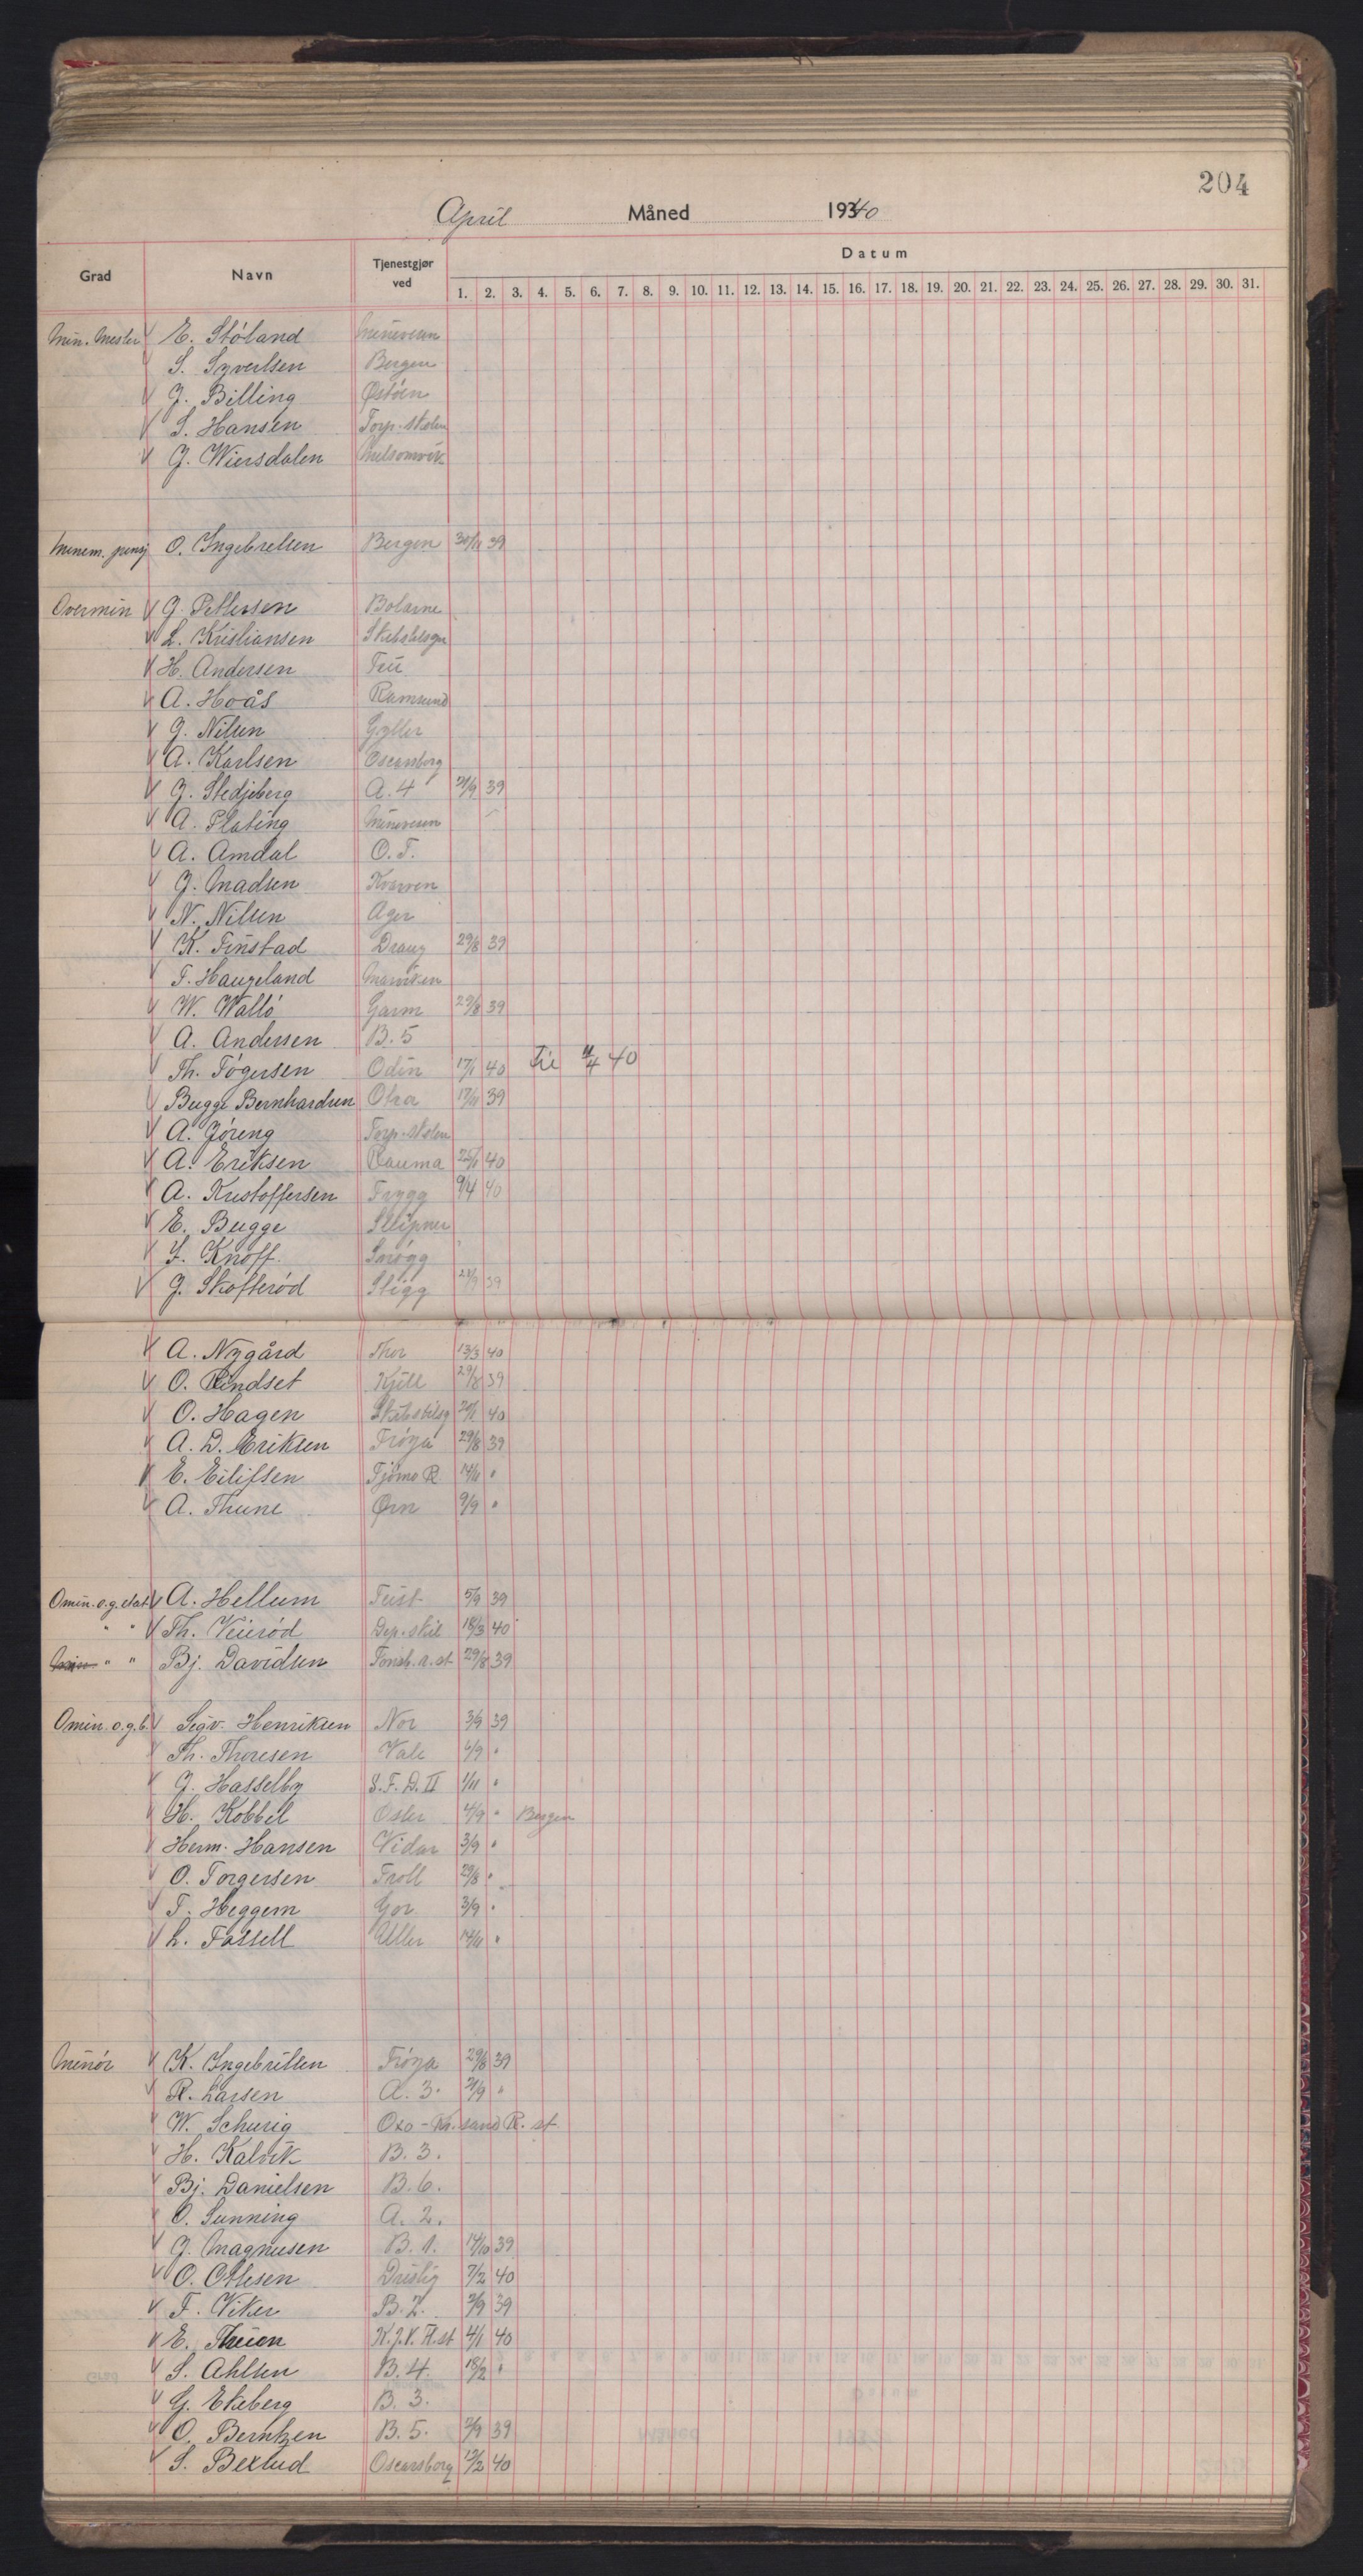 204
April Måned 1940
Grad Navn Tjenestgjør ved Datum
1. 2. 3. 4. 5. 6. 7. 8. 9. 10. 11. 12. 13. 14. 15. 16. 17. 18. 19. 20. 21. 22. 23. 24. 25. 26. 27. 28. 29. 30. 31.
Min. Mester E. Stöland Minevesen
S. Syvertsen Bergen
J. Billing Östöen
S. Hansen Torp. skolen
J. Wiersdalen Melsomvik
Minem. pensj O. Ingebretsen Bergen 30/11 39
Overmin G. Pettersen Bolærne
L. Kristiansen
H. Andersen
A. Hoås Ramsund
J. Nilsen Gyller
A. Karlsen Oscarsborg
J. Stedjeberg A. 4 21/9 39
A. Plating Minevesen
A. Amdal O. T.
J. Madsen Kvarven
N. Nilsen Ager
K. Finstad Draug 29/8 39
T. Haugeland Marviken
W. Wallö Garm 29/8 39
A. Andersen B. 5
Th. Tögersen Odin 17/1 40 40
Bugge Bernhardsen Otra 17/11 39
A. Jöreng Torp. skolen
A. Eriksen Rauma 25/1 40
A. Kristoffersen Trygg 9/4 40
E. Bugge Sleipner
Knoff Snögg
J. Skofteröd Stegg 39
A. Nygård Thor 13/3 40
O. Rindset Kjell 29/8 39
O. Hagen 40
A. D. Eriksen Fröya 29/8 39
E. Eilifsen Tjömo R 14/11 "
A. Thune Örn 9/9 "
Omin. o.g. stat A. Hellum Teist 5/9 39
" " Th. Veieröd Dep. skib 18/3 40
" " Bj. Davidsen Tönsb. r. st 29/8 39
Omin. o.g.b. Sigv. Henriksen Nor 3/9 39
Th. Thoresen Vale 4/9 "
J. Hasselby S.F.D. II 1/11 "
H. Kobbel Oster 4/9 " Bergen
Herm. Hansen Vidar 3/9 "
O. Torgersen Troll 29/8 "
T. Heggem Gor 3/9 "
L. Fossell Uller 14/11 "
Minör K. Ingebritsen Fröya 29/8 39
R. Larsen A. 3. 21/9 "
W. Schurig Oxö - Kr.sand R. st
H. Kalvik B. 3.
Bj. Danielsen B. 6.
O. Sunning A. 2.
J. Magnusen B. 1. 14/10 39
O. Ottesen Dristig 7/2 40
F. Viker B. 2. 39
E. K.J.V. R.st 4/1 40
S. Ahlsen B. 4. 18/2 "
G. Ekeberg B. 3.
O. Berntzen B. 5. 39
S. Bexrud Oscarsborg 40